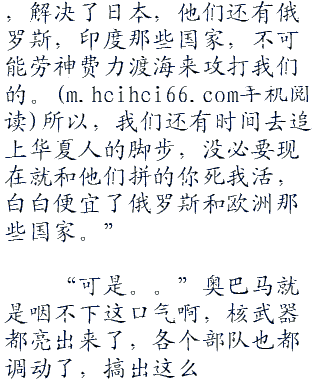 ，解决了日本，他们还有俄
罗斯，印度那些国家，不可
能劳神费力渡海来攻打我们
的。(m.hcihci66.com手机阅
读)所以，我们还有时间去追
上华夏人的脚步，没必要现
在就和他们拼的你死我活，
白白便宜了俄罗斯和欧洲那
些国家。”
“可是。。”奥巴马就
是咽不下这口气啊，核武器
都亮出来了，各个部队也都
调动了，搞出这么